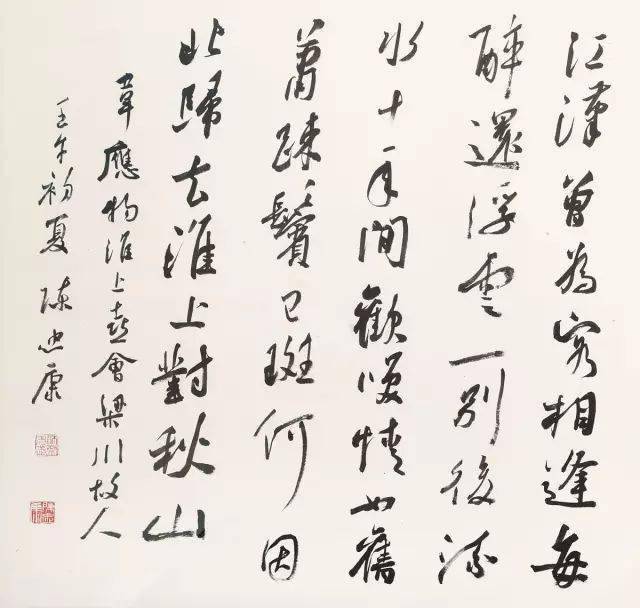 江漢曾為客相逢每
醉還浮雲一別後流
水十年間歡咲情如舊
蕭疎鬢已斑何因
北歸去淮上對秋山
韋應物淮上喜會梁川故人
壬午初夏 陳忠康